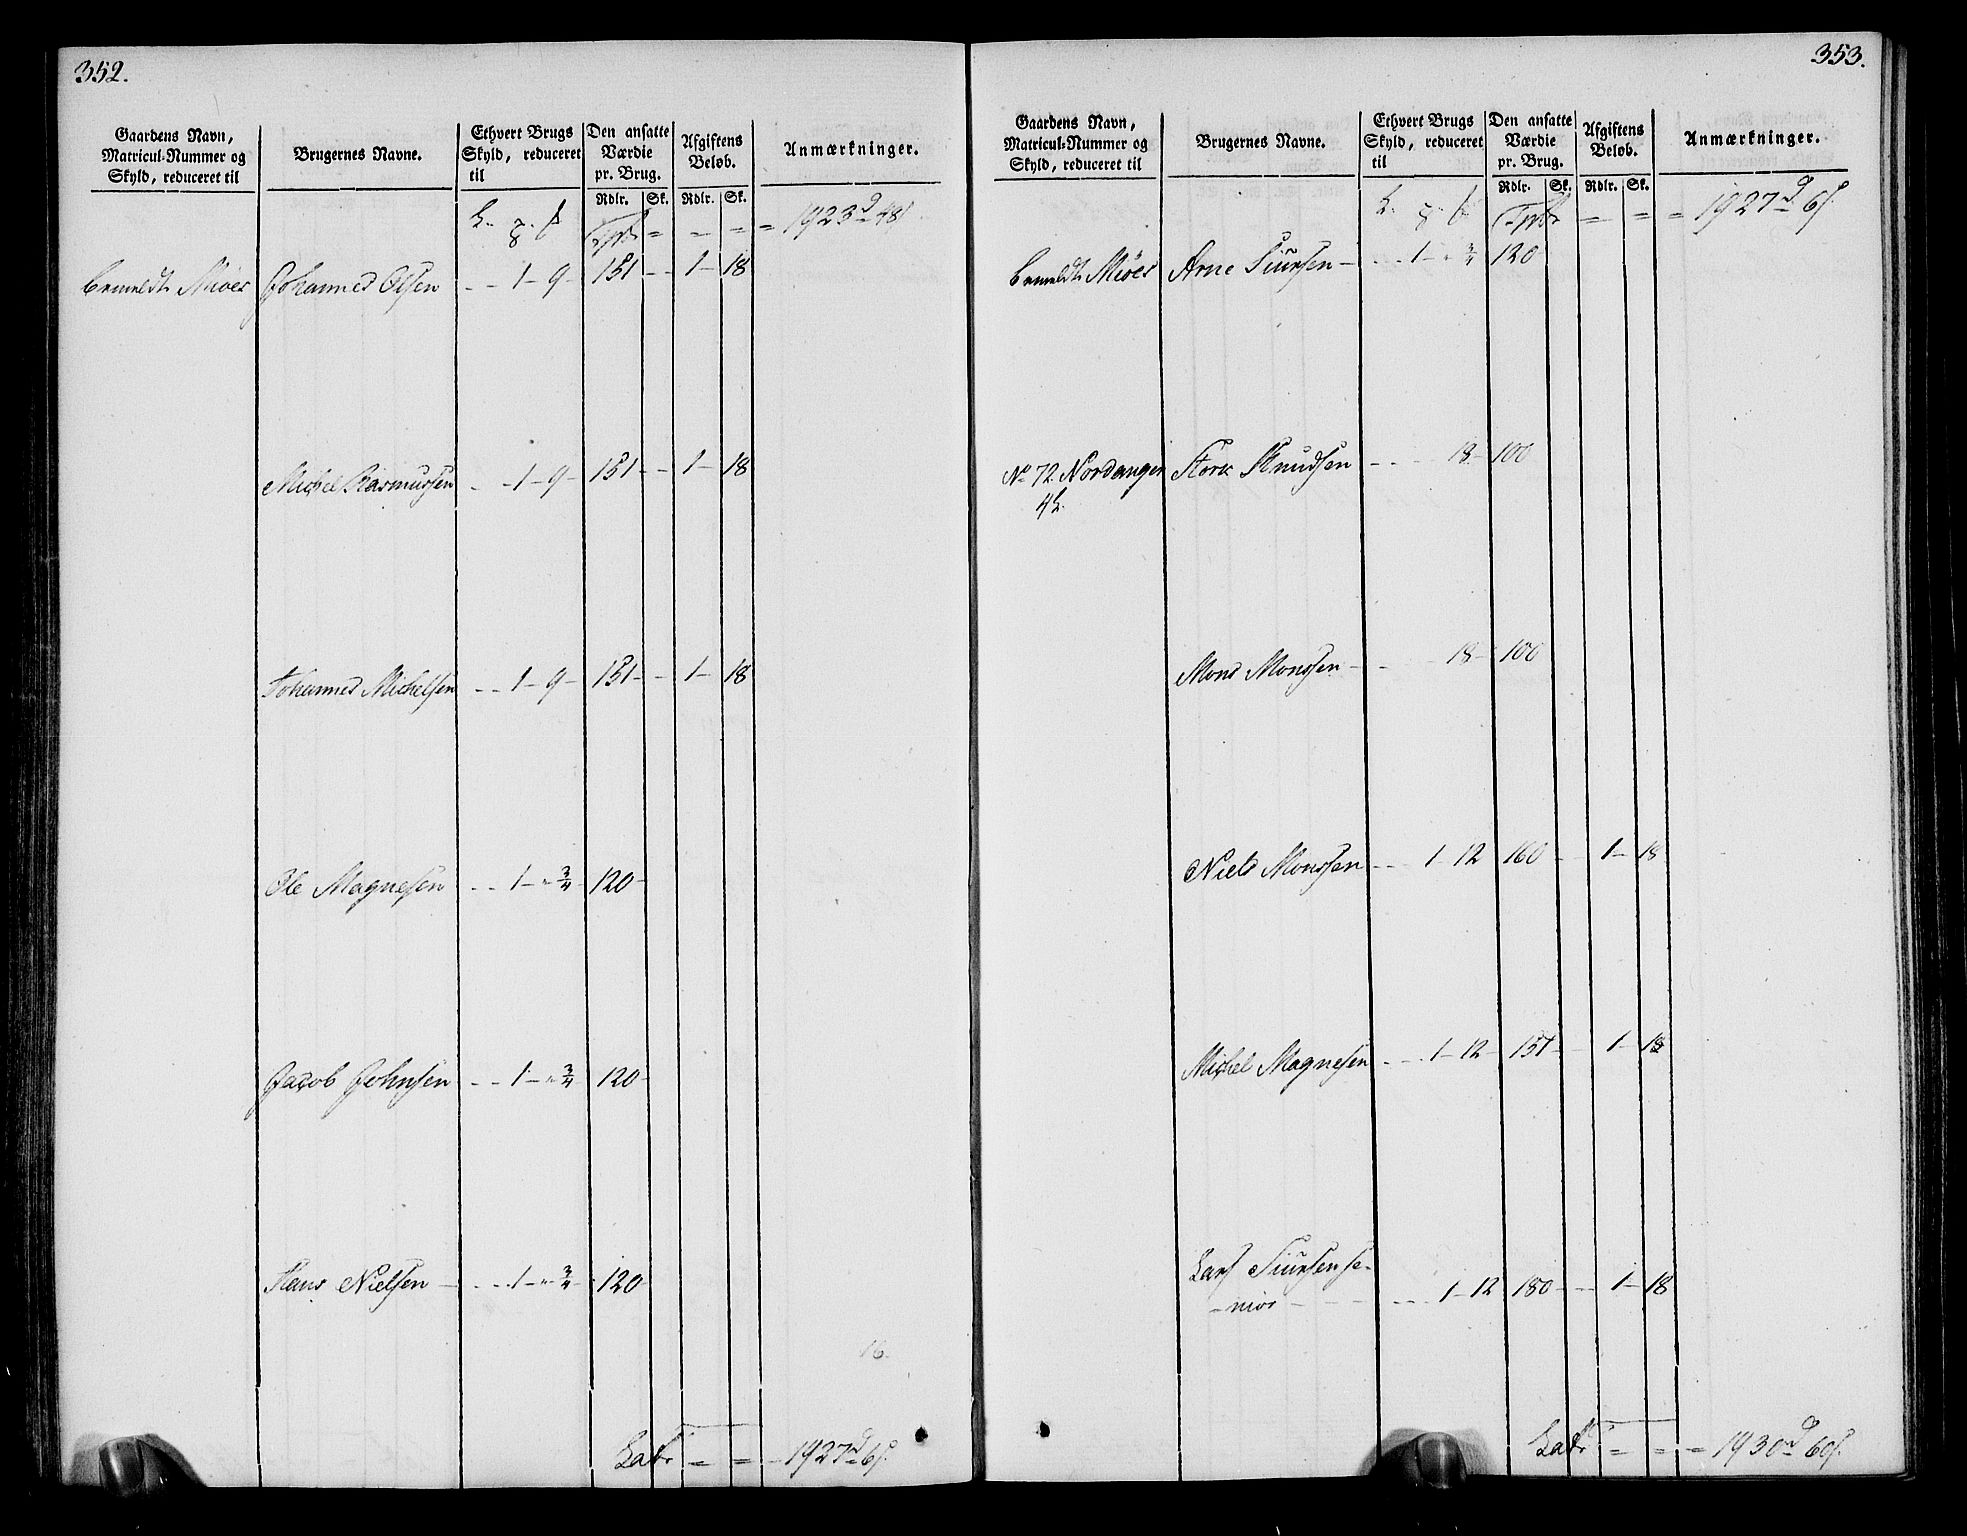 352.
Gaardens Navn, Matricul-Nummer og Skyld, reduceret til
Brugernes Navne.
Ethvert Brugs Skyld, reduceret til
Den ansatte Værdie pr. Brug.
Rdlr. Sk.
Afgiftens Beløb.
Rdlr. Sk.
Anmærkninger.
Tpt = = = = 1923 d 48 s
bemeldte Miøes Johannes Olsen - - 1 - 9 - 151 - - 1 - 18
Michel Rasmussen - - 1 - 9 - 151 - - 1 - 18
Johannes Michelsen - - 1 - 9 - 151 - - 1 - 18
Ole Magnesen - - 1 - " 3/4 - 120 -
Jacob Johnsen - - 1 - " 3/4 - 120 -
Hans Nielsen - - - 1 - " 3/4 - 120 -
16.
Latr = = - 1927 d 6 s.
353.
Gaardens Navn, Matricul-Nummer og Skyld, reduceret til
Brugernes Navne.
Ethvert Brugs Skyld, reduceret til
Den ansatte Værdie pr. Brug.
Rdlr. Sk.
Afgiftens Beløb.
Rdlr. Sk.
Anmærkninger.
Tpt = = = 1927 d 6 s.
bemeldte Miøes Arne Siursen - - - 1 - " 3/4 120
No 72. Nordanger Stork Knudsen - - - 18 - 100
4 L.
Mons Monssen - - 18 - 100
Niels Monssen - - - 1 - 12 160 - - 1 - 18
Michel Magnesen - - - 1 - 12 - 151 - - 1 - 18
Lars Siursen se-
- nior - - - - - - 1 - 12 180 - - - 1 - 18
Latr = = = 1930 d 60 s.